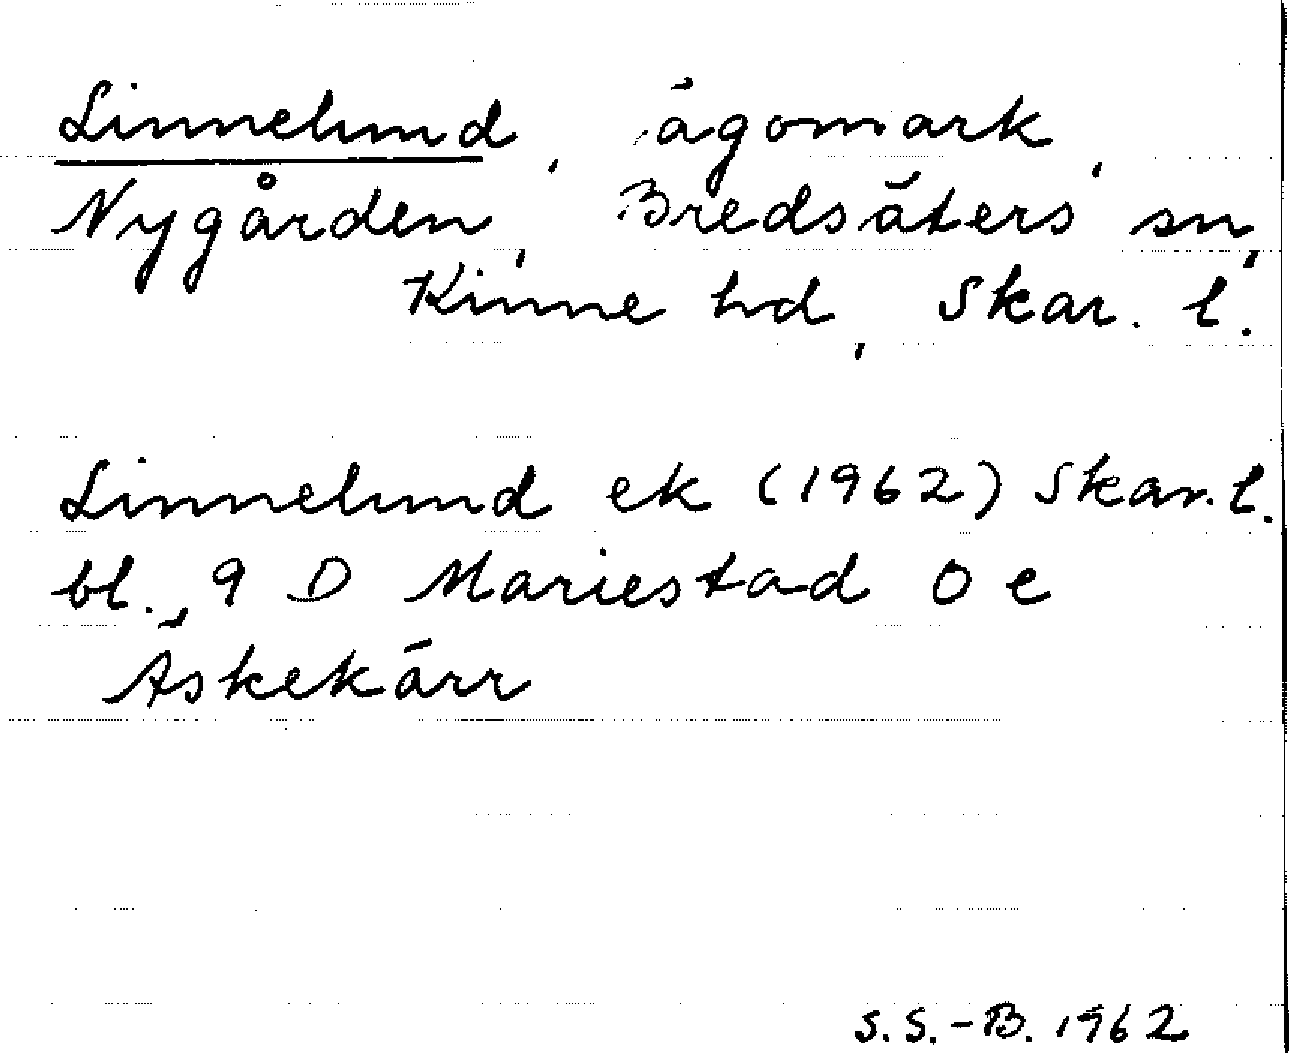 Linnelund, ägomark,
Nygården, Bredsäters sn,
Kinne hd, Skar. l.
Linnelund ek (1962) Skar. l.
bl., 9 D Mariestad 0 e
Äskekärr
S.S.-B. 1962